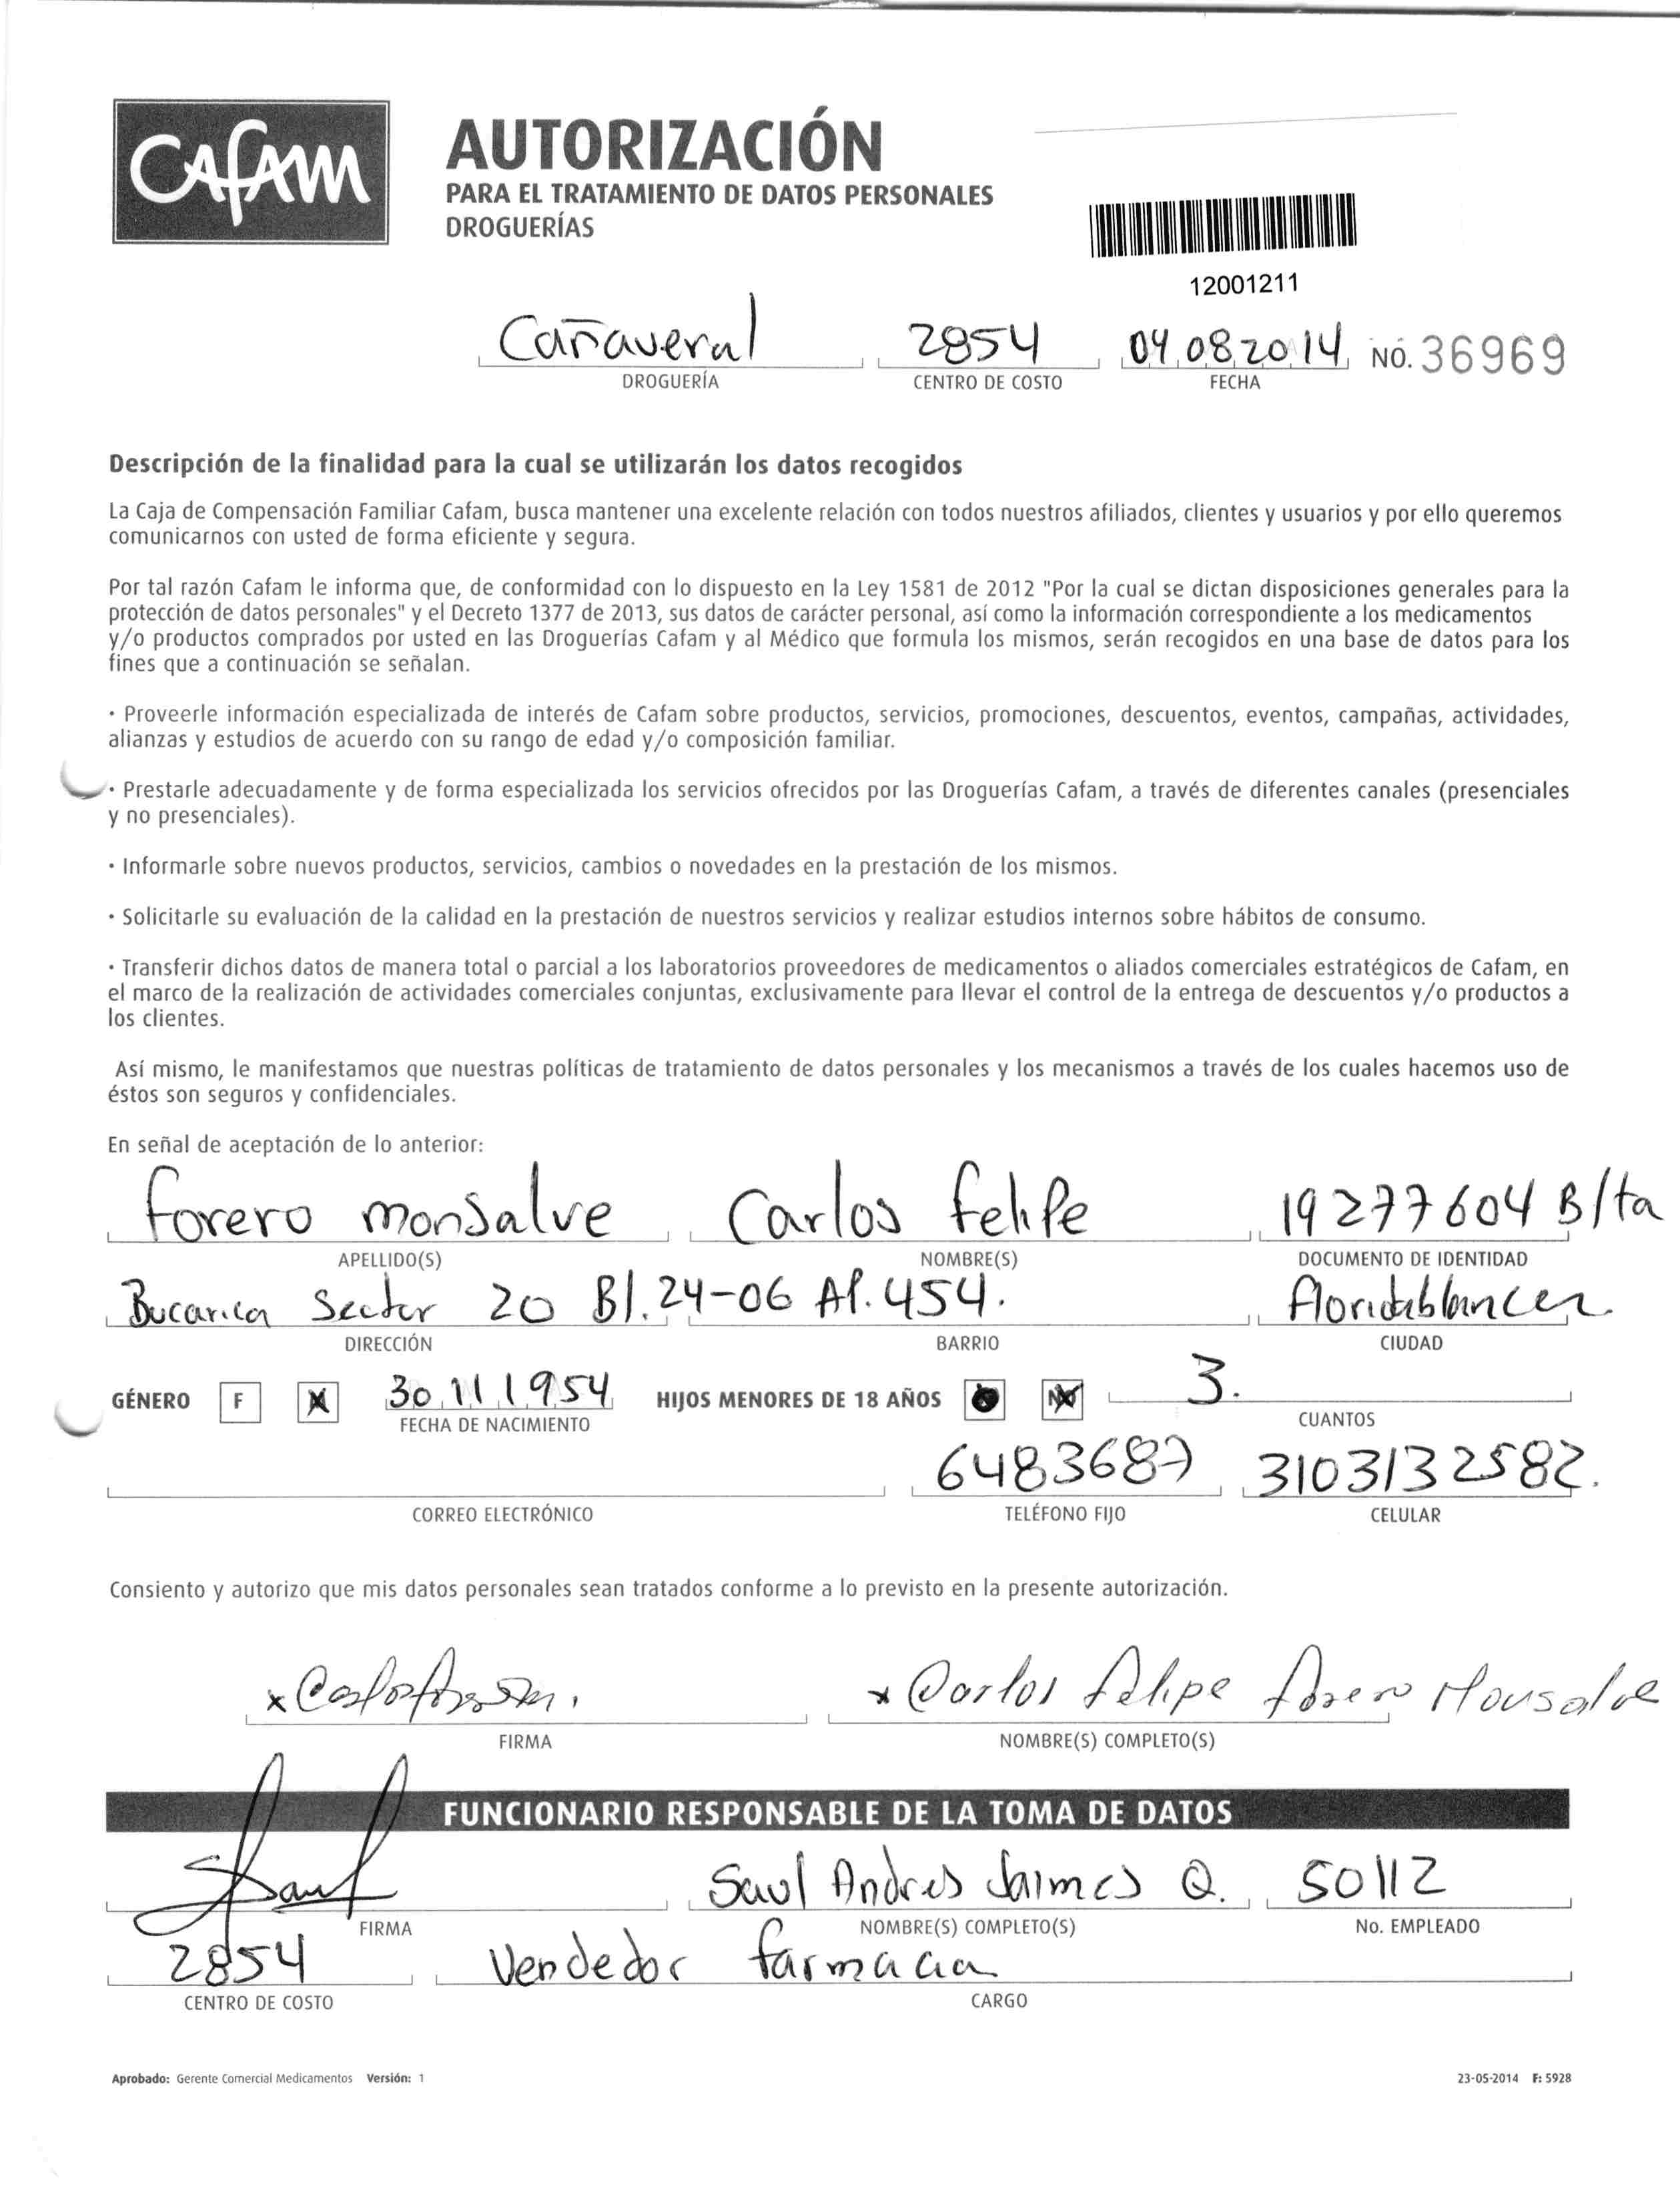 Cafam
AUTORIZACIÓN
PARA EL TRATAMIENTO DE DATOS PERSONALES
DROGUERÍAS
12001211
Cañaveral 2854 04 08 2014 NO. 36969
DROGUERÍA CENTRO DE COSTO FECHA
Descripción de la finalidad para la cual se utilizarán los datos recogidos
La Caja de Compensación Familiar Cafam, busca mantener una excelente relación con todos nuestros afiliados, clientes y usuarios y por ello queremos
comunicarnos con usted de forma eficiente y segura.
Por tal razón Cafam le informa que, de conformidad con lo dispuesto en la Ley 1581 de 2012 "Por la cual se dictan disposiciones generales para la
protección de datos personales" y el Decreto 1377 de 2013, sus datos de carácter personal, así como la información correspondiente a los medicamentos
y/o productos comprados por usted en las Droguerías Cafam y al Médico que formula los mismos, serán recogidos en una base de datos para los
fines que a continuación se señalan.
• Proveerle información especializada de interés de Cafam sobre productos, servicios, promociones, descuentos, eventos, campañas, actividades,
alianzas y estudios de acuerdo con su rango de edad y/o composición familiar.
• Prestarle adecuadamente y de forma especializada los servicios ofrecidos por las Droguerías Cafam, a través de diferentes canales (presenciales
y no presenciales).
• Informarle sobre nuevos productos, servicios, cambios o novedades en la prestación de los mismos.
• Solicitarle su evaluación de la calidad en la prestación de nuestros servicios y realizar estudios internos sobre hábitos de consumo.
• Transferir dichos datos de manera total o parcial a los laboratorios proveedores de medicamentos o aliados comerciales estratégicos de Cafam, en
el marco de la realización de actividades comerciales conjuntas, exclusivamente para llevar el control de la entrega de descuentos y/o productos a
los clientes.
Así mismo, le manifestamos que nuestras políticas de tratamiento de datos personales y los mecanismos a través de los cuales hacemos uso de
éstos son seguros y confidenciales.
En señal de aceptación de lo anterior:
Forero Monsalve Carlos Felipe 19277604 B/ta
APELLIDO(S) NOMBRE(S) DOCUMENTO DE IDENTIDAD
Bucarica Sector 20 Bl. 24-06 Ap. 454. Floridablanca.
DIRECCIÓN BARRIO CIUDAD
GÉNERO F 30 11 1954 HIJOS MENORES DE 18 AÑOS NO 3.
FECHA DE NACIMIENTO CUANTOS
6483687 3103132582.
CORREO ELECTRÓNICO TELÉFONO FIJO CELULAR
Consiento y autorizo que mis datos personales sean tratados conforme a lo previsto en la presente autorización.
x x Carlos Felipe Forero Monsalve
FIRMA NOMBRE(S) COMPLETO(S)
FUNCIONARIO RESPONSABLE DE LA TOMA DE DATOS
Saul Andres Jaimes Q. 50112
FIRMA NOMBRE(S) COMPLETO(S) No. EMPLEADO
2854 Vendedor farmacia
CENTRO DE COSTO CARGO
Aprobado: Gerente Comercial Medicamentos Versión: 1 23-05-2014 F: 5928